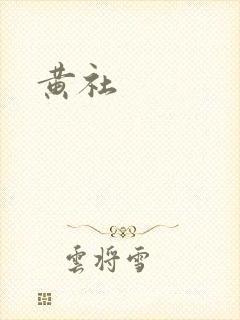 黄社
雲将雪